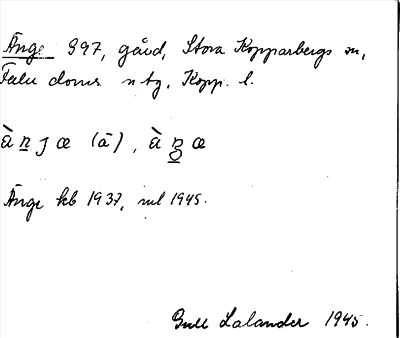 Änge 997, gård, Stora Kopparbergs sn,
Falu doms. ntg. Kopp. l.
Änge kb 1937, ml 1945.
Gull Lalander 1945.